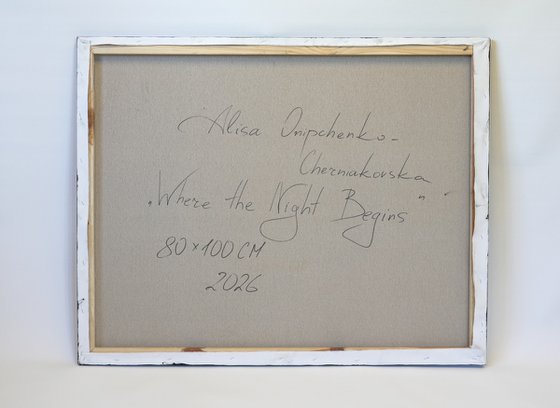 Alisa Onipchenko-
Cherniakovska
„Where the Night Begins"
80×100 CM
2026